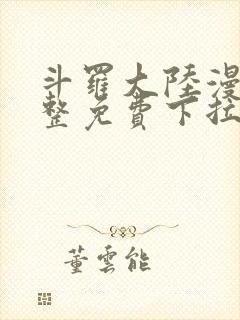 斗羅大陸漫
整免費下拉
董雲能